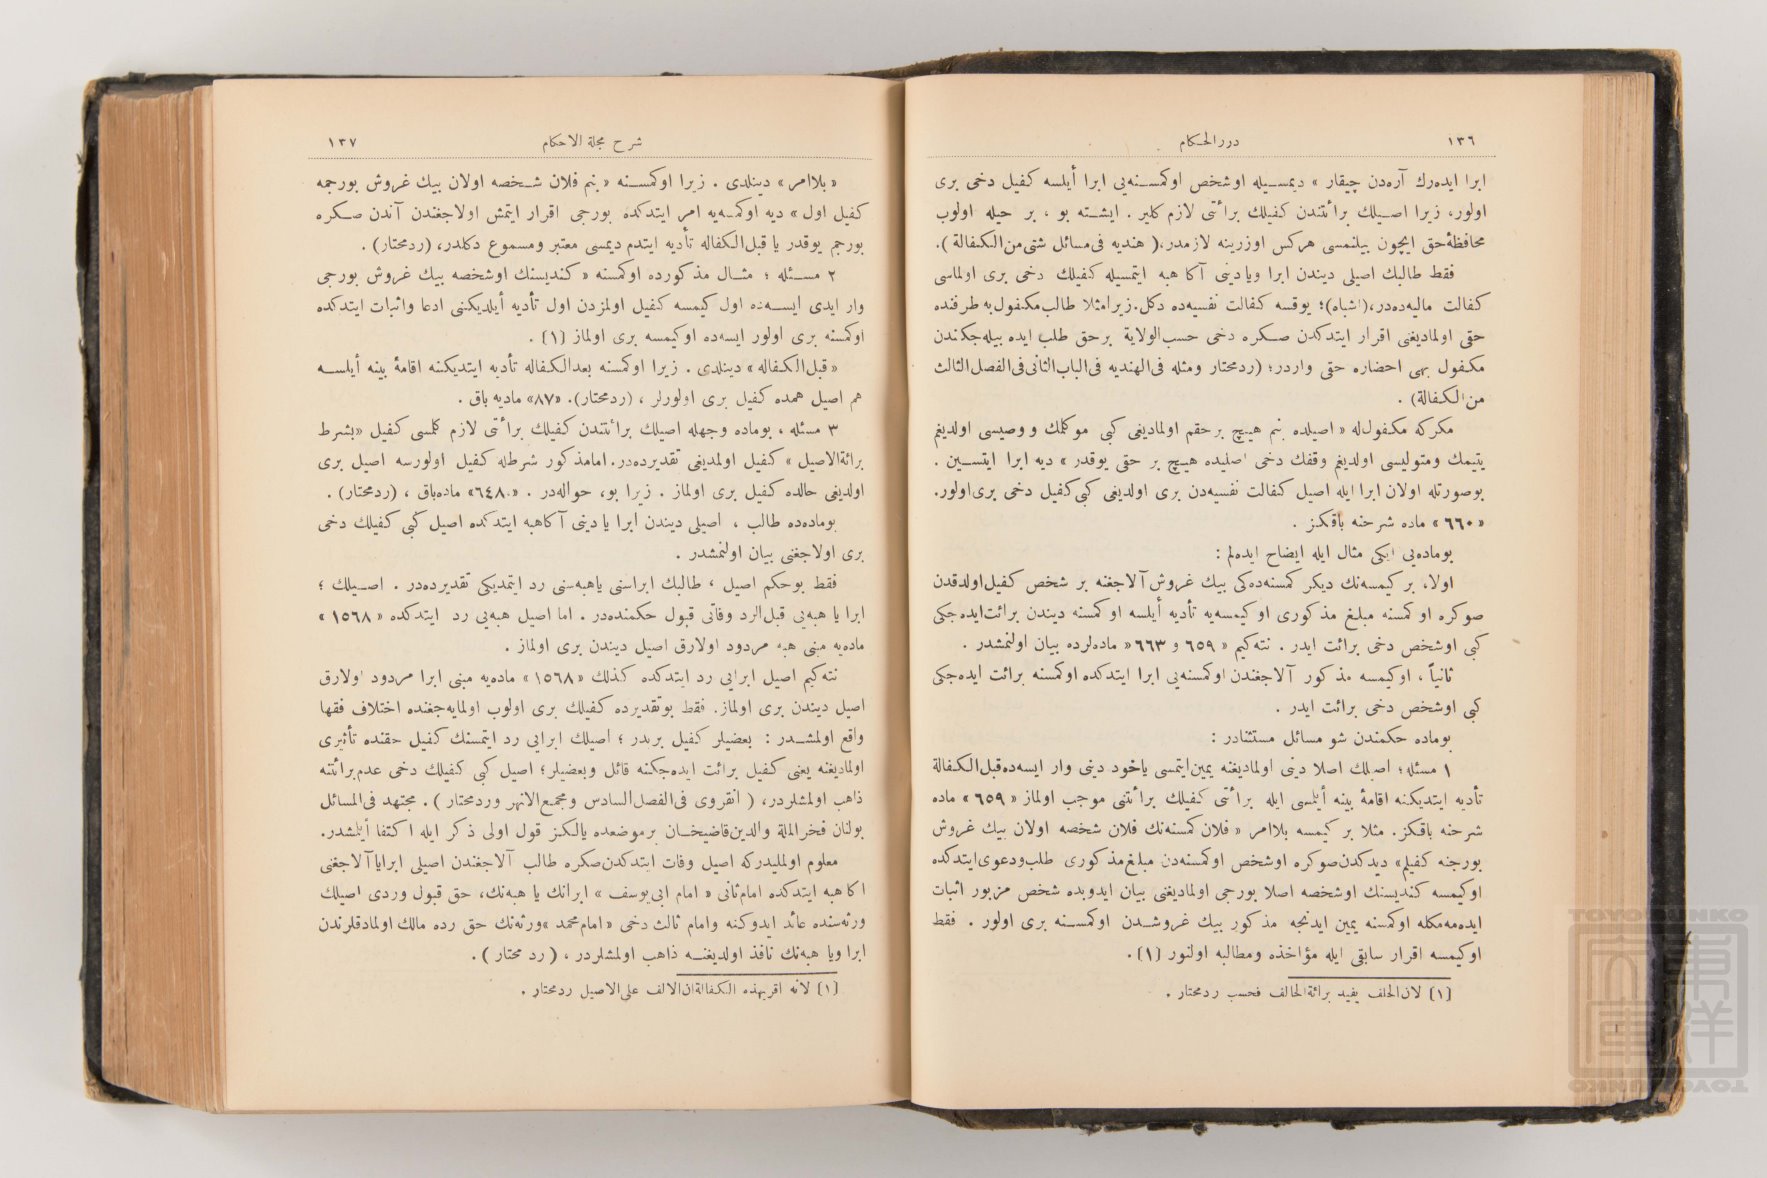 ١٣٦ دررالحكام
ابرا ايده‌رك آره‌دن چيقار » ديمسيله اوشخص اوكمسنه‌يى ابرا أيلسه كفيل دخى برى
اولور، زيرا اصيلك برائتندن كفيلك برائتى لازم كلير . ايشته بو ، بر حيله اولوب
محافظهٔ حق ايچون بيلنمسى هركس اوزرينه لازمدر،( هنديه فى مسائل شتى من الكفالة ).
فقط طالبك اصيلى ديندن ابرا ويا دينى آكا هبه ايتمسيله كفيلك دخى برى اولماسى
كفالت ماليه‌ده‌در،(اشباه)؛ يوقسه كفالت نفسيه‌ده دكل. زيرا مثلا طالب مكفول به طرفنده
حقى اولماديغنى اقرار ايتدكدن صكره دخى حسب الولاية برحق طلب ايده بيله‌جكندن
مكفول بهى احضاره حقى واردر؛ (ردمختار ومثله فى الهنديه فى الباب الثانى فى الفصل الثالث
من الكفالة) .
مكركه مكفول له « اصيلده بنم هيچ برحقم اولماديغى كبى موكلمك ووصيسى اولديغم
يتيمك ومتوليسى اولديغم وقفك دخى اصليده هيچ بر حقى يوقدر » ديه ابرا ايتسين .
بوصورتله اولان ابرا ايله اصيل كفالت نفسيه‌دن برى اولديغى كبى كفيل دخى برى اولور.
« ٦٦٠ » ماده شرحنه باقكز .
بوماده‌يى ايكى مثال ايله ايضاح ايده‌لم :
اولا، بر كيمسه‌نك ديكر كمسنه‌ده‌كى بيك غروش آلاجغنه بر شخص كفيل اولدقدن
صوكره او كمسنه مبلغ مذكورى اوكيمسه‌يه تأديه أيلسه اوكمسنه ديندن برائت ايده‌جكى
كبى اوشخص دخى برائت ايدر . نته‌كيم « ٦٥٩ و ٦٦٣ » ماده‌لرده بيان اولنمشدر .
ثانياً ، اوكيمسه مذكور آلاجغندن اوكمسنه‌يى ابرا ايتدكده اوكمسنه برائت ايده‌جكى
كبى اوشخص دخى برائت ايدر .
بوماده حكمندن شو مسائل مستثنادر :
١ مسئله؛ اصيلك اصلا دينى اولماديغنه يمين ايتمسى ياخود دينى وار ايسه‌ده قبل الكفالة
تأديه ايتديكنه اقامهٔ بينه أيلمسى ايله برائتى كفيلك برائتنى موجب اولماز « ٦٥٩ » ماده
شرحنه باقكز. مثلا بر كيمسه بلاامر « فلان كمسنه‌نك فلان شخصه اولان بيك غروش
بورجنه كفيلم» ديدكدن صوكره اوشخص اوكمسنه‌دن مبلغ مذكورى طلب ودعوى ايتدكده
اوكيمسه كنديسنك اوشخصه اصلا بورجى اولماديغنى بيان ايدوبده شخص مزبور اثبات
ايده‌مه‌مكله اوكمسنه يمين ايدنجه مذكور بيك غروشدن اوكمسنه برى اولور . فقط
اوكيمسه اقرار سابقى ايله مؤاخذه ومطالبه اولنور [١].
[١] لان الحلف يفيد برائة الحالف فحسب ردمختار .
شرح مجلة الاحكام ١٣٧
« بلاامر » دينلدى . زيرا اوكمسنه « بنم فلان شخصه اولان بيك غروش بورجمه
كفيل اول » ديه اوكمسه‌يه امر ايتدكده بورجى اقرار ايتمش اولاجغندن آندن صكره
بورجم يوقدر يا قبل الكفاله تأديه ايتدم ديمسى معتبر ومسموع دكلدر، (ردمختار) .
٢ مسئله ؛ مثال مذكورده اوكمسنه « كنديسنك اوشخصه بيك غروش بورجى
وار ايدى ايسه‌ده اول كيمسه كفيل اولمزدن اول تأديه أيلديكنى ادعا واثبات ايتدكده
اوكمسنه برى اولور ايسه‌ده اوكيمسه برى اولماز [١] .
« قبل الكفاله » دينلدى . زيرا اوكمسنه بعدالكفاله تأديه ايتديكنه اقامهٔ بينه أيلسه
هم اصيل همده كفيل برى اولورلر ، (ردمختار). «٨٧» ماديه باق .
٣ مسئله ، بوماده وجهله اصيلك برائتندن كفيلك برائتى لازم كلمسى كفيل «بشرط
برائة الاصيل » كفيل اولمديغى تقديرده‌در. اما مذكور شرطله كفيل اولورسه اصيل برى
اولديغى حالده كفيل برى اولماز . زيرا بو، حواله‌در . «٦٤٨» ماده‌باق ، (ردمختار) .
بوماده‌ده طالب ، اصيلى ديندن ابرا يا دينى آكاهبه ايتدكده اصيل كبى كفيلك دخى
برى اولاجغنى بيان اولنمشدر .
فقط بوحكم اصيل ، طالبك ابراسنى ياهبه‌سنى رد ايتمديكى تقديرده‌در . اصيلك ؛
ابرا يا هبه‌يى قبل الرد وفاتى قبول حكمنده‌در . اما اصيل هبه‌يى رد ايتدكده « ١٥٦٨ »
ماده‌يه مبنى هبه مردود اولارق اصيل ديندن برى اولماز .
نته‌كيم اصيل ابرايى رد ايتدكده كذلك « ١٥٦٨ » ماده‌يه مبنى ابرا مردود اولارق
اصيل ديندن برى اولماز. فقط بوتقديرده كفيلك برى اولوب اولمايه‌جغنده اختلاف فقها
واقع اولمشدر : بعضيلر كفيل بريدر ؛ اصيلك ابرايى رد ايتمسنك كفيل حقنده تأثيرى
اولماديغنه يعنى كفيل برائت ايده‌جكنه قائل وبعضيلر؛ اصيل كبى كفيلك دخى عدم برائتنه
ذاهب اولمشلردر، ( انقروى فى الفصل السادس ومجمع الانهر وردمختار ) . مجتهد فى المسائل
بولنان فخرالملة والدين قاضيخان برموضعده يالكز قول اولى ذكر ايله اكتفا أيلمشدر.
معلوم اولمليدركه اصيل وفات ايتدكدن صكره طالب آلاجغندن اصيلى ابرايا آلاجغنى
اكا هبه ايتدكده امام ثانى « امام ابى يوسف » ابرانك يا هبه‌نك، حق قبول وردى اصيلك
ورثه‌سنده عائد ايدوكنه وامام ثالث دخى « امام محمد »ورثه‌نك حق رده مالك اولمادقلرندن
ابرا ويا هبه‌نك نافذ اولديغنه ذاهب اولمشلردر ، ( رد مختار ) .
[١] لانه اقر بهذه الكفالة ان الالف على الاصيل ردمختار .
TOYO BUNKO
東洋文庫
TOYO BUNKO